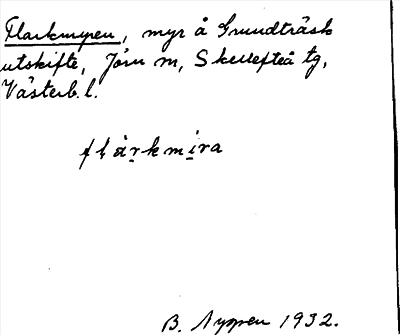 Flarkmyren, myr å Grundträsk
utskifte, Jörn m, Skellefteå tg,
Västerb. l.
flạ̊rkmi̱ra
B. Nyman 1932.